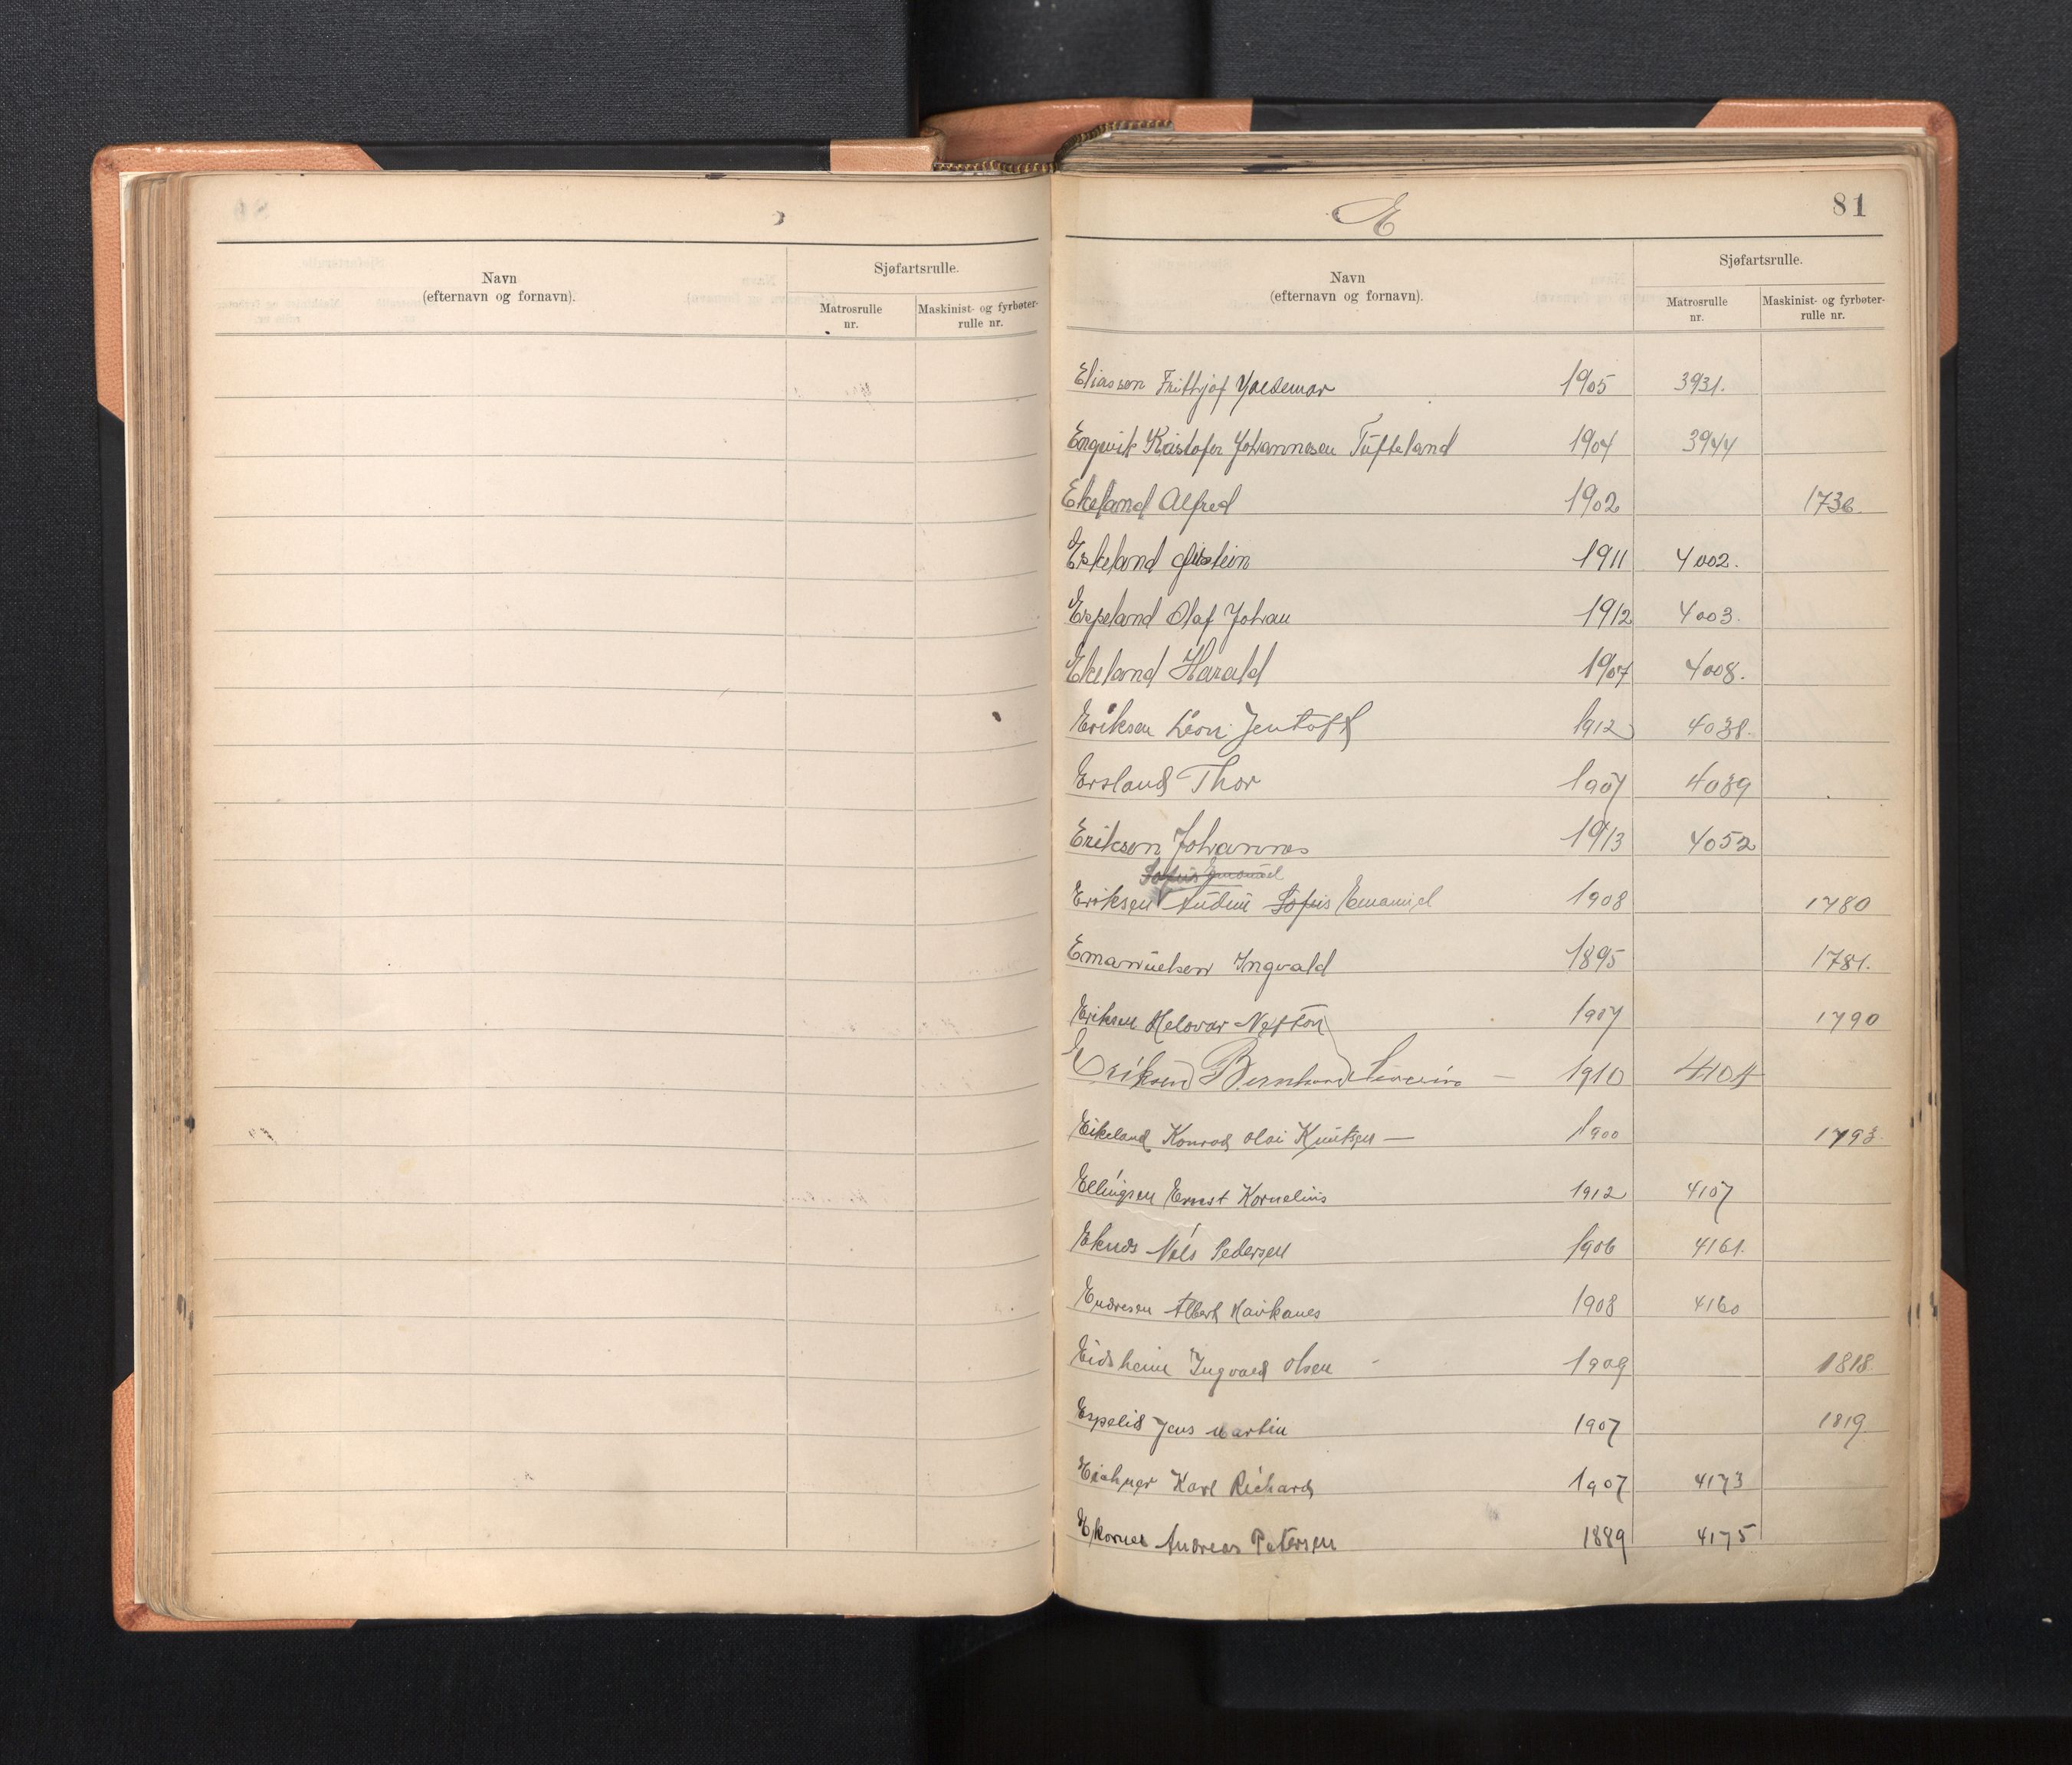 Navn
(efternavn og fornavn).
Sjøfartsrulle.
Matrosrulle
nr.
Maskinist- og fyrbøter-
rulle nr.
E
81
Navn
(efternavn og fornavn).
Sjøfartsrulle.
Matrosrulle
nr.
Maskinist- og fyrbøter-
rulle nr.
Eliassen Frithjof Valdemar 1905 3931.
Engevik Kristofer Johannesen Tufteland 1904 3944
Ekeland Alfred 1902 1736.
Eskeland Øistein 1911 4002.
Espeland Olaf Johan 1912 4003.
Ekeland Harald 1907 4008.
Eriksen Leon Jentoft 1912 4038.
Ersland Thor 1907 4039
Eriksen Johannes 1913 4052
Sofus Emanuel
Eriksen Audun Sofus Emanuel 1908 1780
Emanuelsen Ingvald 1895 1781.
Eriksen Nefton 1907 1790
Eriksen Bernhard Severin — 1910 4104
Eikeland Konrad Olai Knutsen — 1900 1793
Ellingsen Ernst Kornelius 1912 4107
Eknes Nils Pedersen 1906 4161.
Endresen Albert 1908 4160
Eidsheim Ingvald Olsen 1909 1818
Espelid Jens Martin 1907 1819
Karl Richard 1907 4173
Ekornes Andreas Petersen 1889 4175